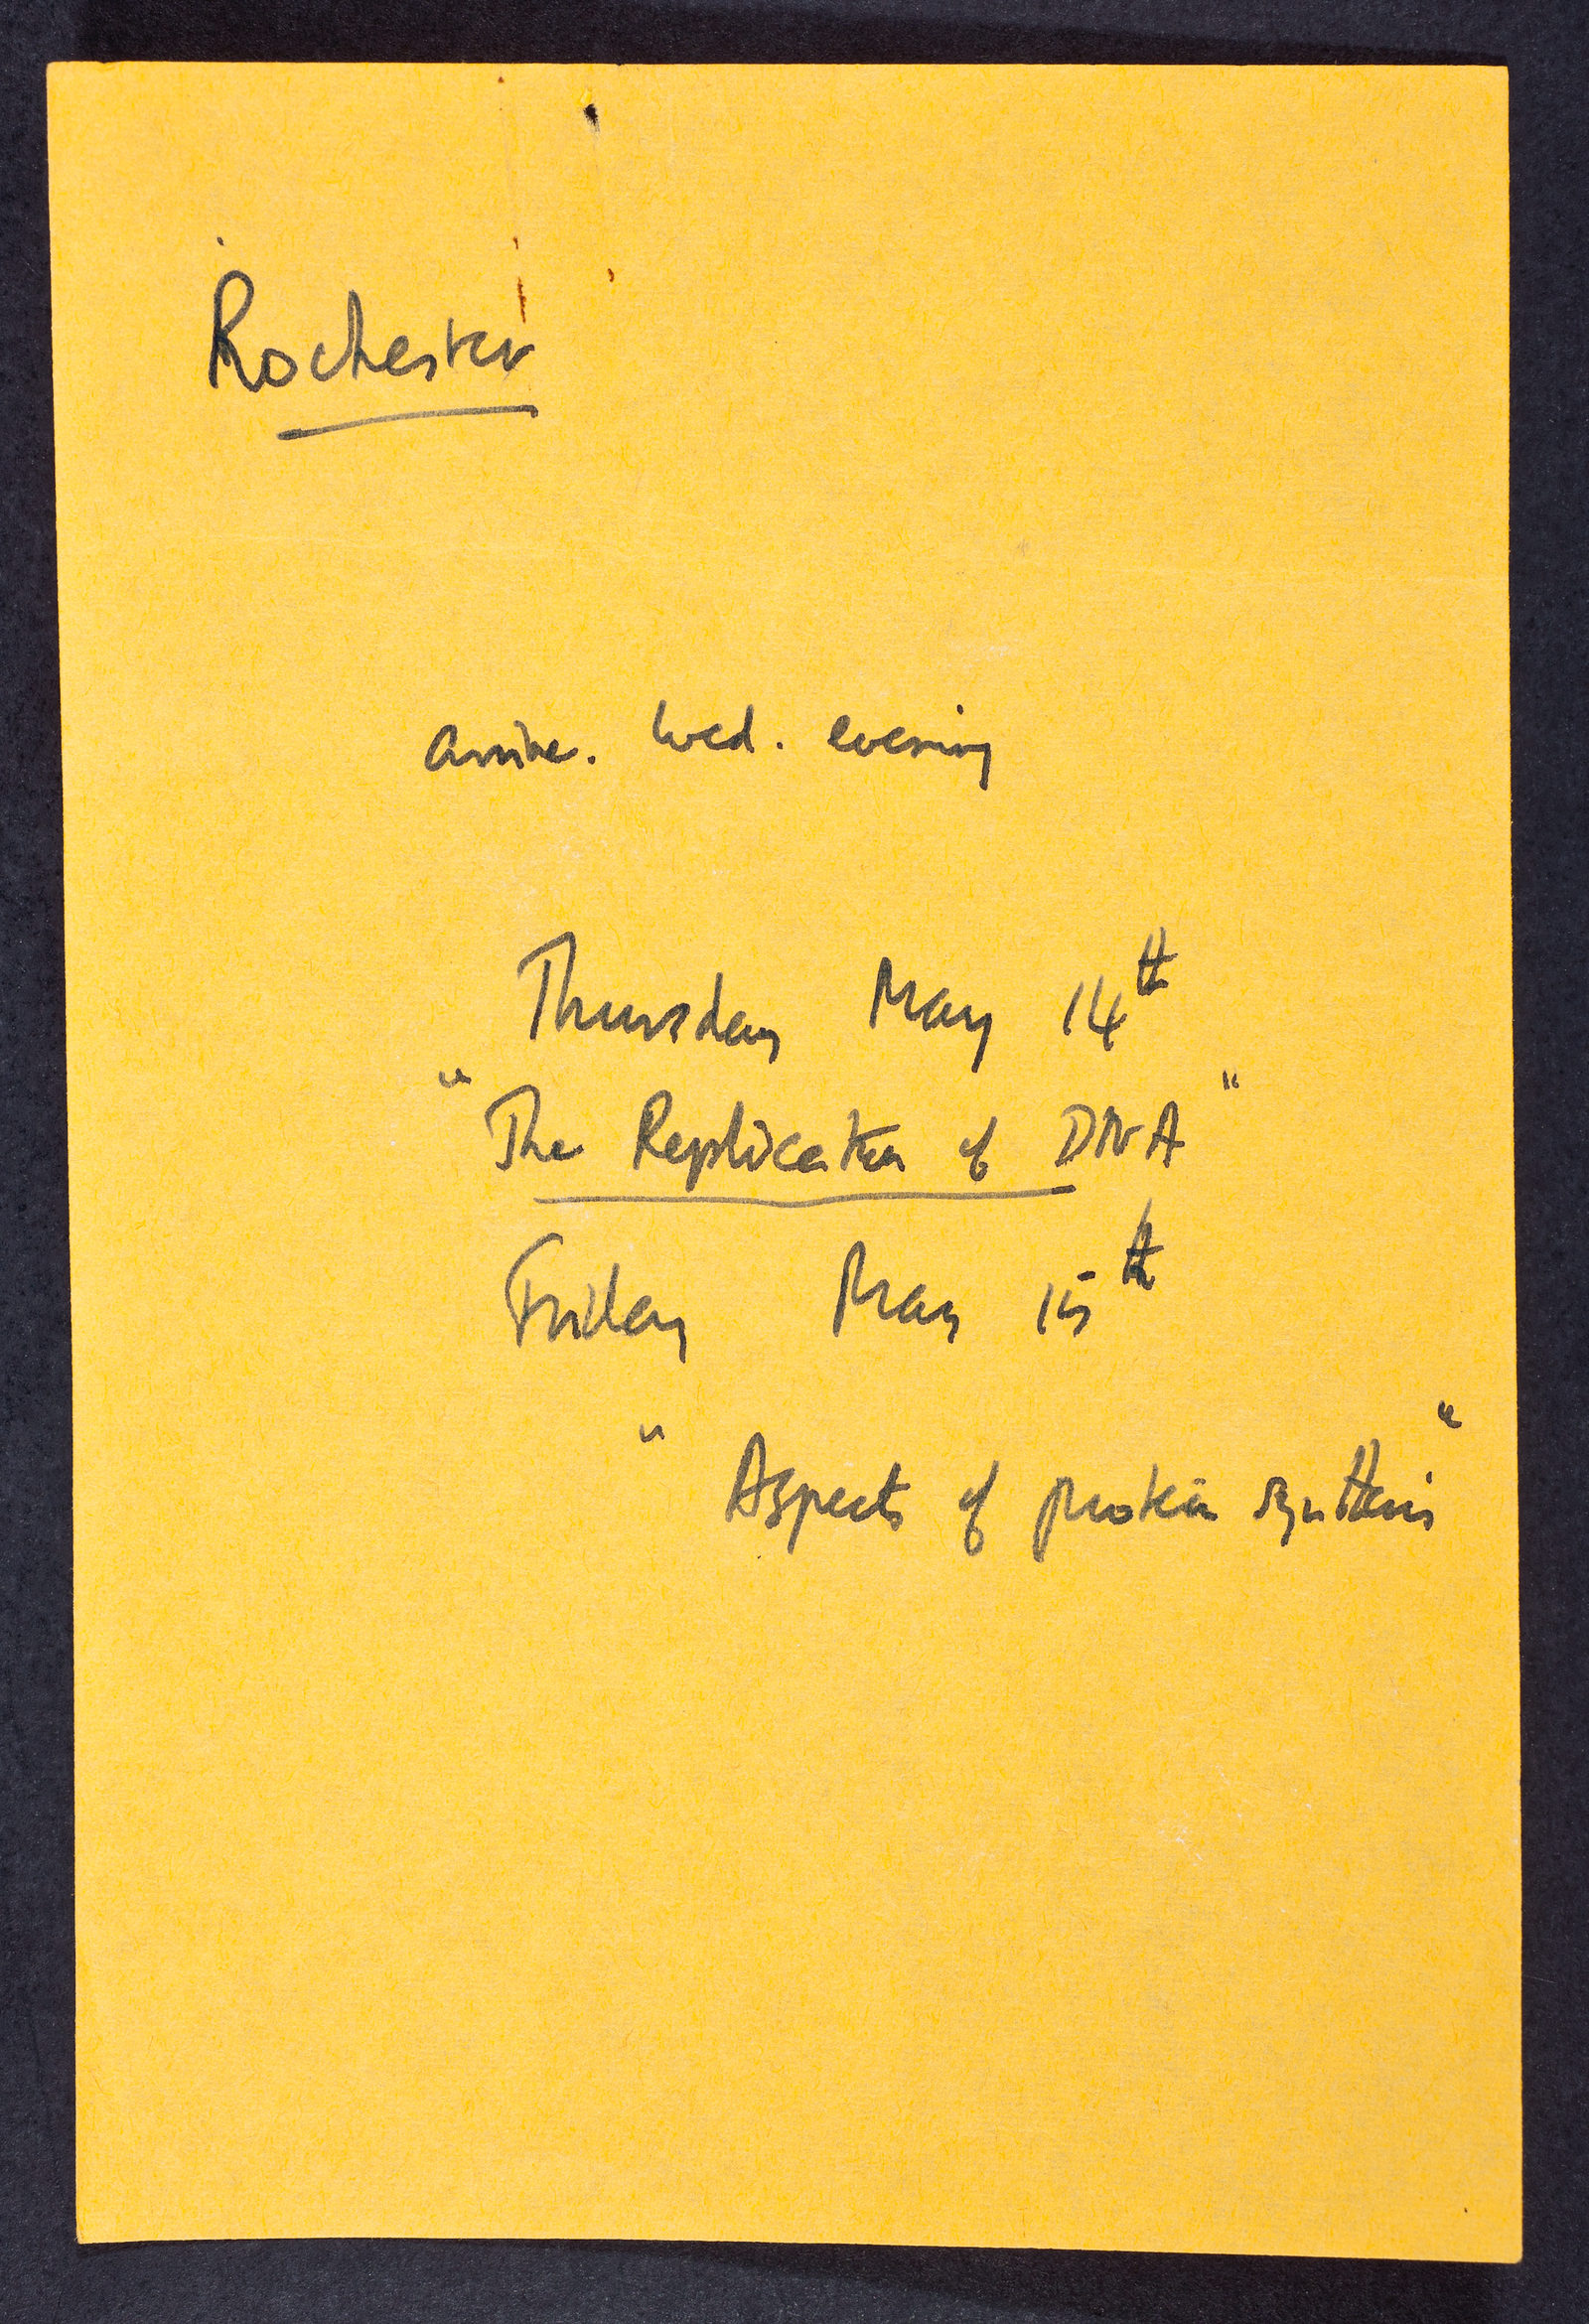 Rochester
arrive. Wed. evening
Thursday May 14th
"The Replication of DNA"
Friday May 15th
"Aspects of protein synthesis"